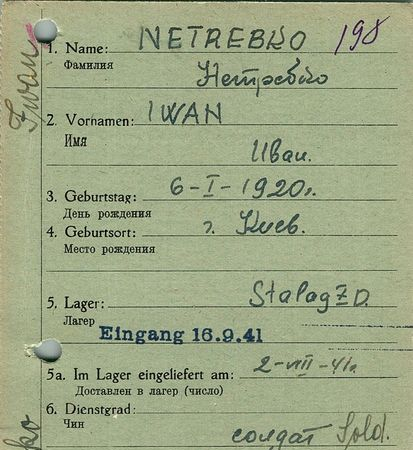 1. Name: NETREBKO 198
Фамилия Нетребко
2. Vornamen: IWAN
Имя Иван.
3. Geburtstag: 6-I-1920г.
День рождения
4. Geburtsort: г. Киев.
Место рождения
5. Lager: Stalag
Лагерь
Eingang 16.9.41
5a. Im Lager eingeliefert am: 2-VIII-41г.
Доставлен в лагерь (число)
6. Dienstgrad:
Чин солдат Sold.
Iwan
ko